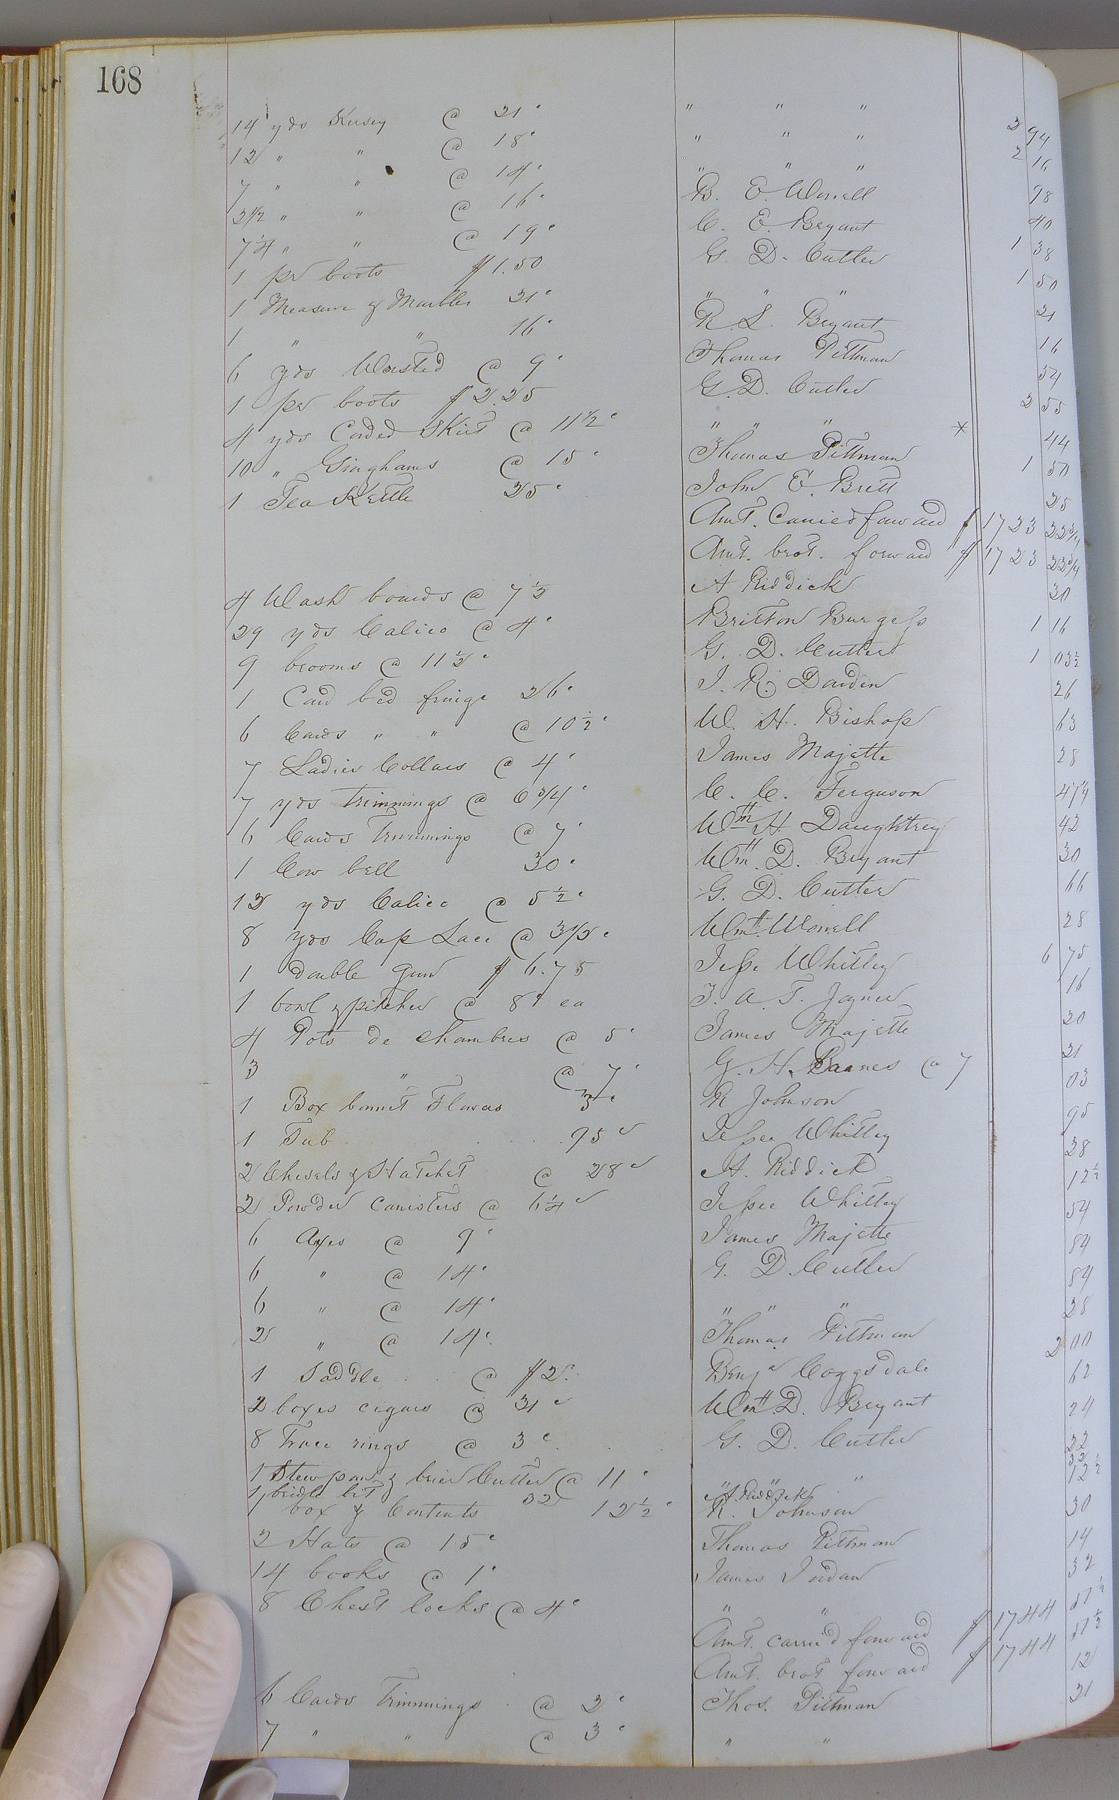 168
14 yds Kersey @ 21c " " " 2 94
12 " " @ 18c " " " 2 16
7 " " @ 14c " " " 98
2 1/2 " " @ 16c B. E. Worrell 40
7 1/4 " " @ 19c C. E. Bryant 1 38
1 pr boots $1.50 G. D. Cutler 1 50
1 Measure & Marbles 21c " " " 21
1 " " 16c R. S. Bryant 16
6 yds Worsted @ 9c Thomas Pittman 54
1 pr boots $2.25 G. D. Cutler 2 25
4 yds Corded Skirt @ 11 1/2c " " " × 44
10 " Ginghams @ 15c Thomas Pittman 1 50
1 Tea Kettle 25c John E. Britt 25
Amt. carried forward $ 1723 22 3/4
Amt. brot. forward $ 1723 22 3/4
4 Wash boards @ 7 1/2 A Riddick 30
29 yds Calico @ 4c Britton Burgess 1 16
9 brooms @ 11 1/2c G. D. Cutler 1 03 1/2
1 Card bed fringe 26c J. R. Darden 26
6 Cards " " @ 10 1/2c W. H. Bishop 63
7 Ladies Collars @ 4c James Majette 28
7 yds trimmings @ 6 3/4c C. C. Ferguson 47 1/4
6 Cards Trimmings @ 7c Wm H Daughtrey 42
1 Cow bell 30c Wm. D. Bryant 30
12 yds Calico @ 5 1/2c G. D. Cutler 66
8 yds Cap Lace @ 3 1/2c Wm. Worrell 28
1 double gun $6.75 Jesse Whitley 6 75
1 bowl & pitcher @ 8c ea J. A. T. Joyner 16
4 Pots de chambres @ 5c James Majette 20
3 " @ 7c G. H. Barnes @ 7 21
1 Box bonnet Flowers 3c R Johnson 03
1 Tub 95c Jesse Whitley 95
2 Chisels & Hatchet @ 28c A. Riddick 28
2 Powder canisters @ 6 1/4c Jesse Whitley 12 1/2
6 Axes @ 9c James Majette 54
6 " @ 14c G. D. Cutler 84
6 " @ 14c " " " 84
2 " @ 14c Thomas Pittman 28
1 Saddle @ $2c Benjn Coggsdale 2 00
2 boxes cigars @ 31c Wm D. Bryant 62
8 Trace rings @ 3c G. D. Cutler 24
1 Stew pan & brier Cutter @ 11c " " " 22
1 bridle bit 32 A. Riddick 32
1 box & Contents 12 1/2c R. Johnson 12 1/2
2 Hats @ 15c Thomas Pittman 30
14 books @ 1c James Jordan 14
8 Chest locks @ 4c " " 32
Amt. carried forward $ 1744
Amt. brot forward $ 1744
6 Cards Trimmings @ 2c Thos. Pittman 12
7 " " @ 3c " " 21